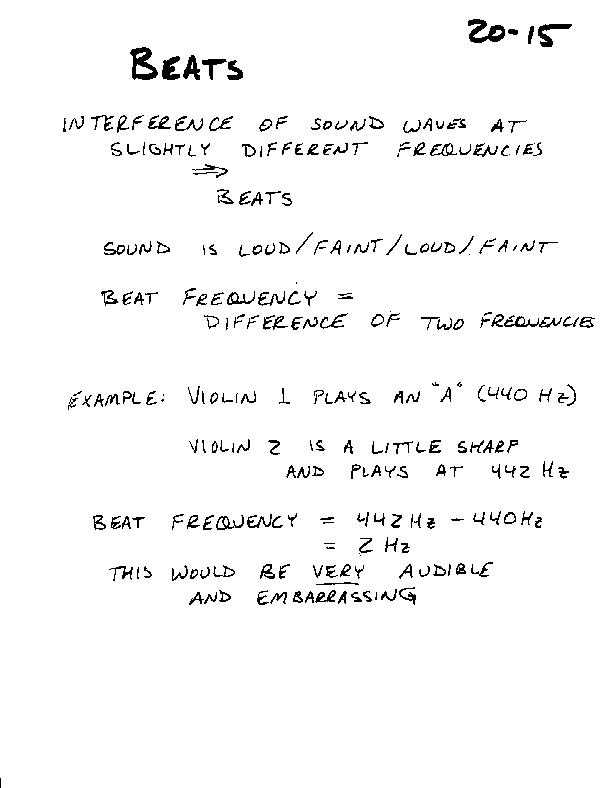 20-15
BEATS
INTERFERENCE OF SOUND WAVES AT
SLIGHTLY DIFFERENT FREQUENCIES
⇒
BEATS
SOUND IS LOUD/FAINT/LOUD/FAINT
BEAT FREQUENCY =
DIFFERENCE OF TWO FREQUENCIES
EXAMPLE: VIOLIN 1 PLAYS AN "A" (440 Hz)
VIOLIN 2 IS A LITTLE SHARP
AND PLAYS AT 442 Hz
BEAT FREQUENCY = 442Hz - 440Hz
= 2 Hz
THIS WOULD BE VERY AUDIBLE
AND EMBARRASSING